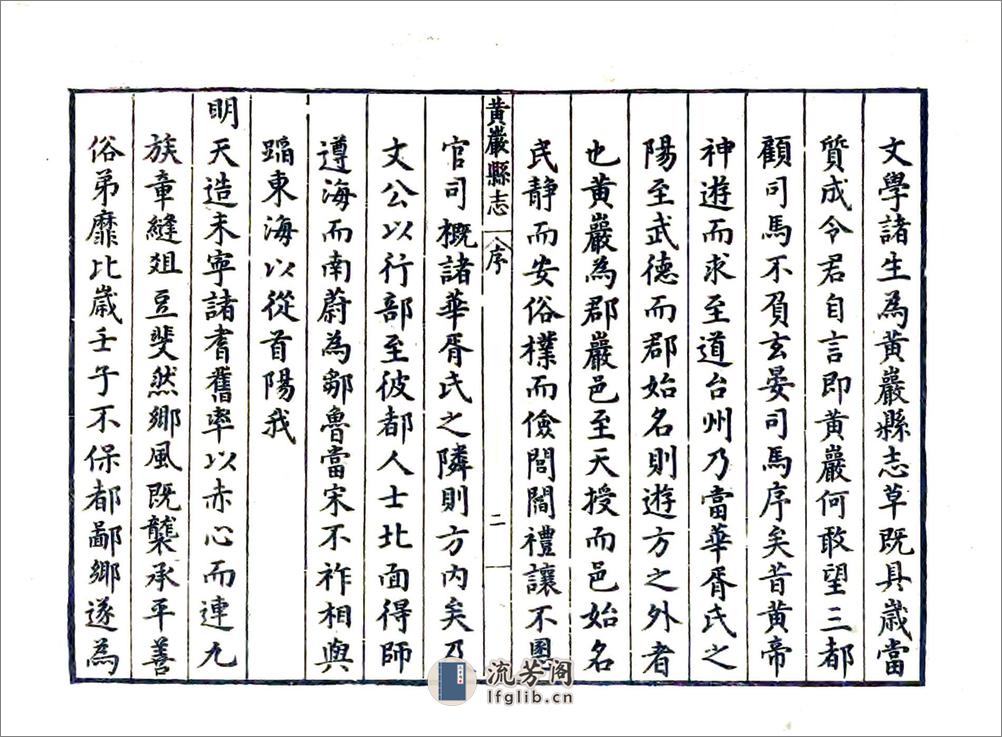 文學諸生為黃巖縣志草既具歲當
質成令君自言即黃巖何敢望三都
顧司馬不負玄晏司馬序矣昔黃帝
神遊而求至道台州乃當華胥氏之
陽至武德而郡始名則遊方之外者
也黃巖為郡巖邑至天授而邑始名
民靜而安俗樸而儉閭閻禮讓不慁
黃巖縣志 序 二
官司概諸華胥氏之隣則方內矣乃
文公以行部至彼都人士北面得師
遵海而南蔚為鄒魯當宋不祚相與
蹈東海以從首陽我
明天造未寧諸耆舊率以赤心而連九
族章縫俎豆斐然鄉風既襲承平善
俗弟靡比歲壬子不保都鄙鄉遂為
流芳阁
lfglib.cn